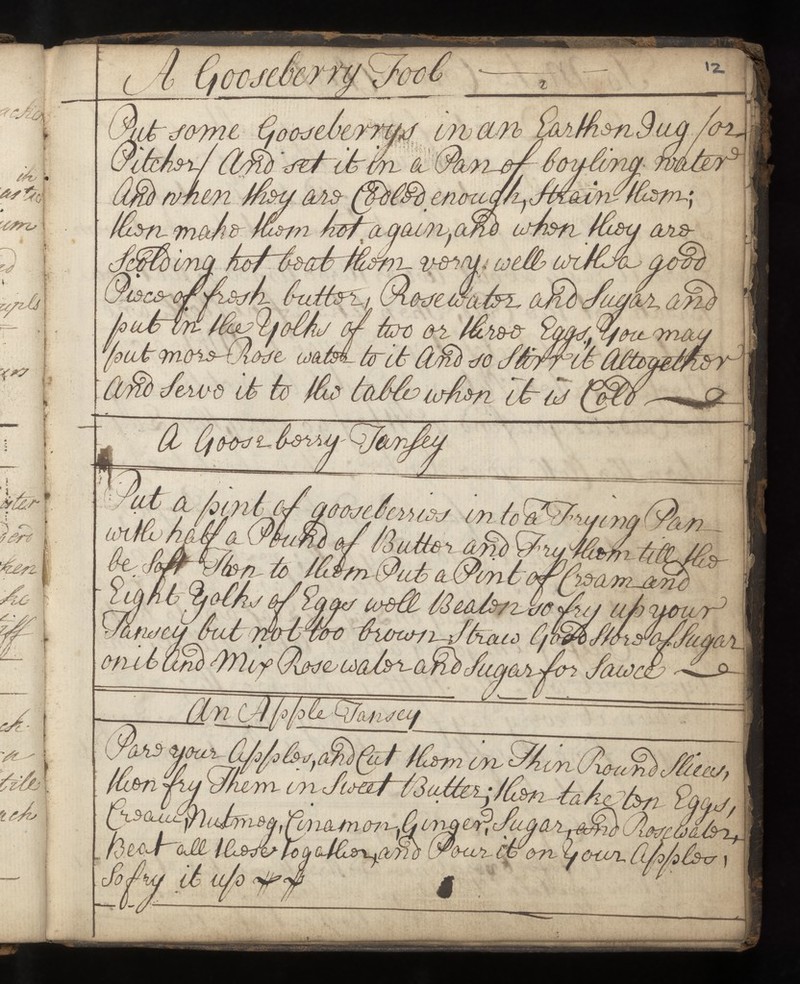 12
A Gooseberry Fool
Put some Gooseberrys in an Earthen Jug /or
Pitcher/ And set it in a Pan of boyling water
And when they are Coded enough, Strain them;
then make them hot again, and when they are
Scolding hot beat them very well with a good
Piece of fresh butter, Rosewater and Sugar and
put in the Yolks of two or three Eggs, You may
put more Rose water to it And so Stirr it Altogether
And Serve it to the table when it is Cold
A Goose berry Tansey
Put a pint of gooseberries into a Frying Pan
with half a Pound of Butter and Fry them till the
be Soft Then to them Put a Pint of Cream and
Eight Yolks of Eggs well Beaten so fry up your
Tansey but not too brown Straw Good Store of Sugar
on it And Mix Rosewater and Sugar for Sawce
An Apple Tansey
Pare your Apples, and Cut them in Thin Round Slices,
then fry Them in Sweet Butter; then take ten Eggs,
Cream, Nutmeg, Cinamon, Ginger, Sugar, and Rosewater,
Beat all these togather, and Pour it on Your Apples,
So fry it up